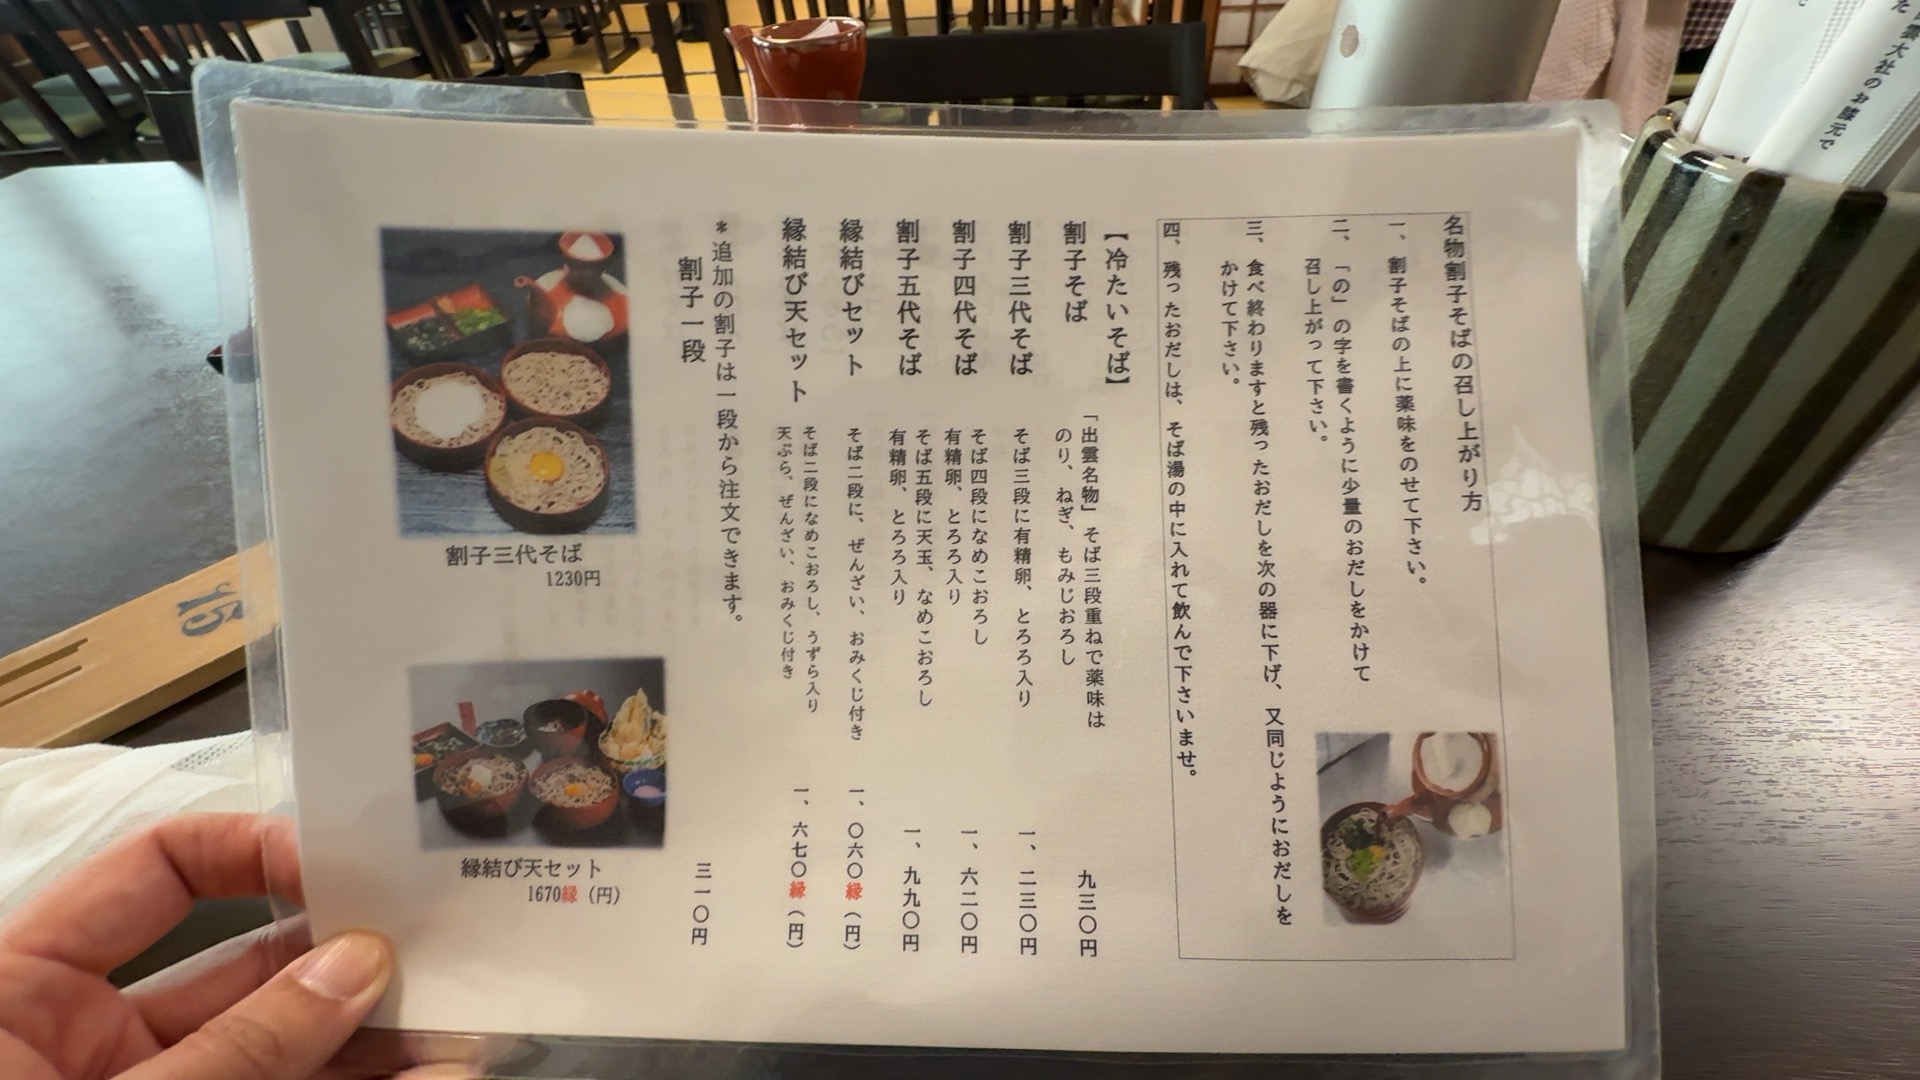 名物割子そばの召し上がり方
一、割子そばの上に薬味をのせて下さい。
二、「の」の字を書くように少量のおだしをかけて
召し上がって下さい。
三、食べ終わりますと残ったおだしを次の器に下げ、又同じようにおだしを
かけて下さい。
四、残ったおだしは、そば湯の中に入れて飲んで下さいませ。
【冷たいそば】
割子そば
「出雲名物」そば三段重ねで薬味は
のり、ねぎ、もみじおろし
九三〇円
割子三代そば
そば三段に有精卵、とろろ入り
一、二三〇円
割子四代そば
そば四段になめこおろし
有精卵、とろろ入り
一、六二〇円
割子五代そば
そば五段に天玉、なめこおろし
有精卵、とろろ入り
一、九九〇円
縁結びセット
そば二段に、ぜんざい、おみくじ付き
一、〇六〇縁(円)
縁結び天セット
そば二段になめこおろし、うずら入り
天ぷら、ぜんざい、おみくじ付き
一、六七〇縁(円)
*追加の割子は一段から注文できます。
割子一段
三一〇円
割子三代そば
1230円
縁結び天セット
1670縁(円)
雲大社のお膝元で
15